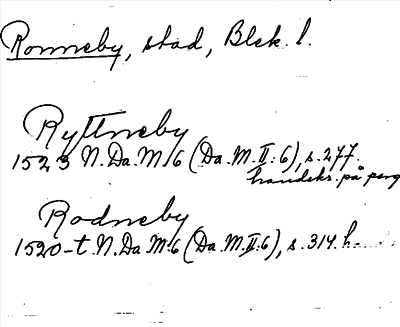 Ronneby, stad, Blek. l.
Ryttneby
1523 N.Da.M. 6 (Da.M.II:6), s.277.
handskr. på perg
Rodneby
1520-t. N.Da.M.6 (Da.M.II:6), s.314.